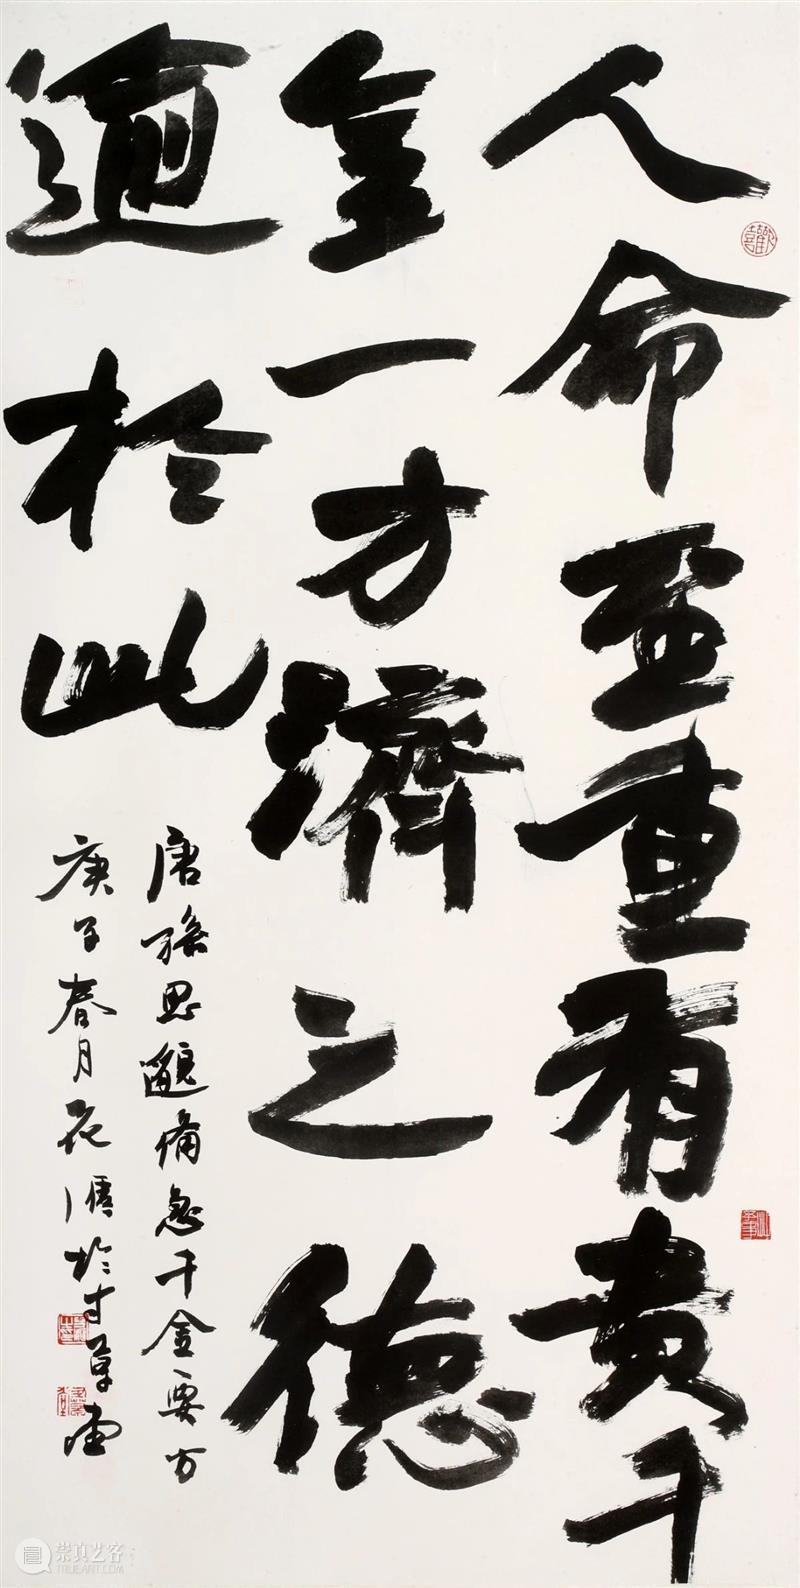 人命至重有貴千
金一方濟之德
逾於此
唐孫思邈備急千金要方
庚子春月花於寸草堂
崇真艺客
TRUEART.COM